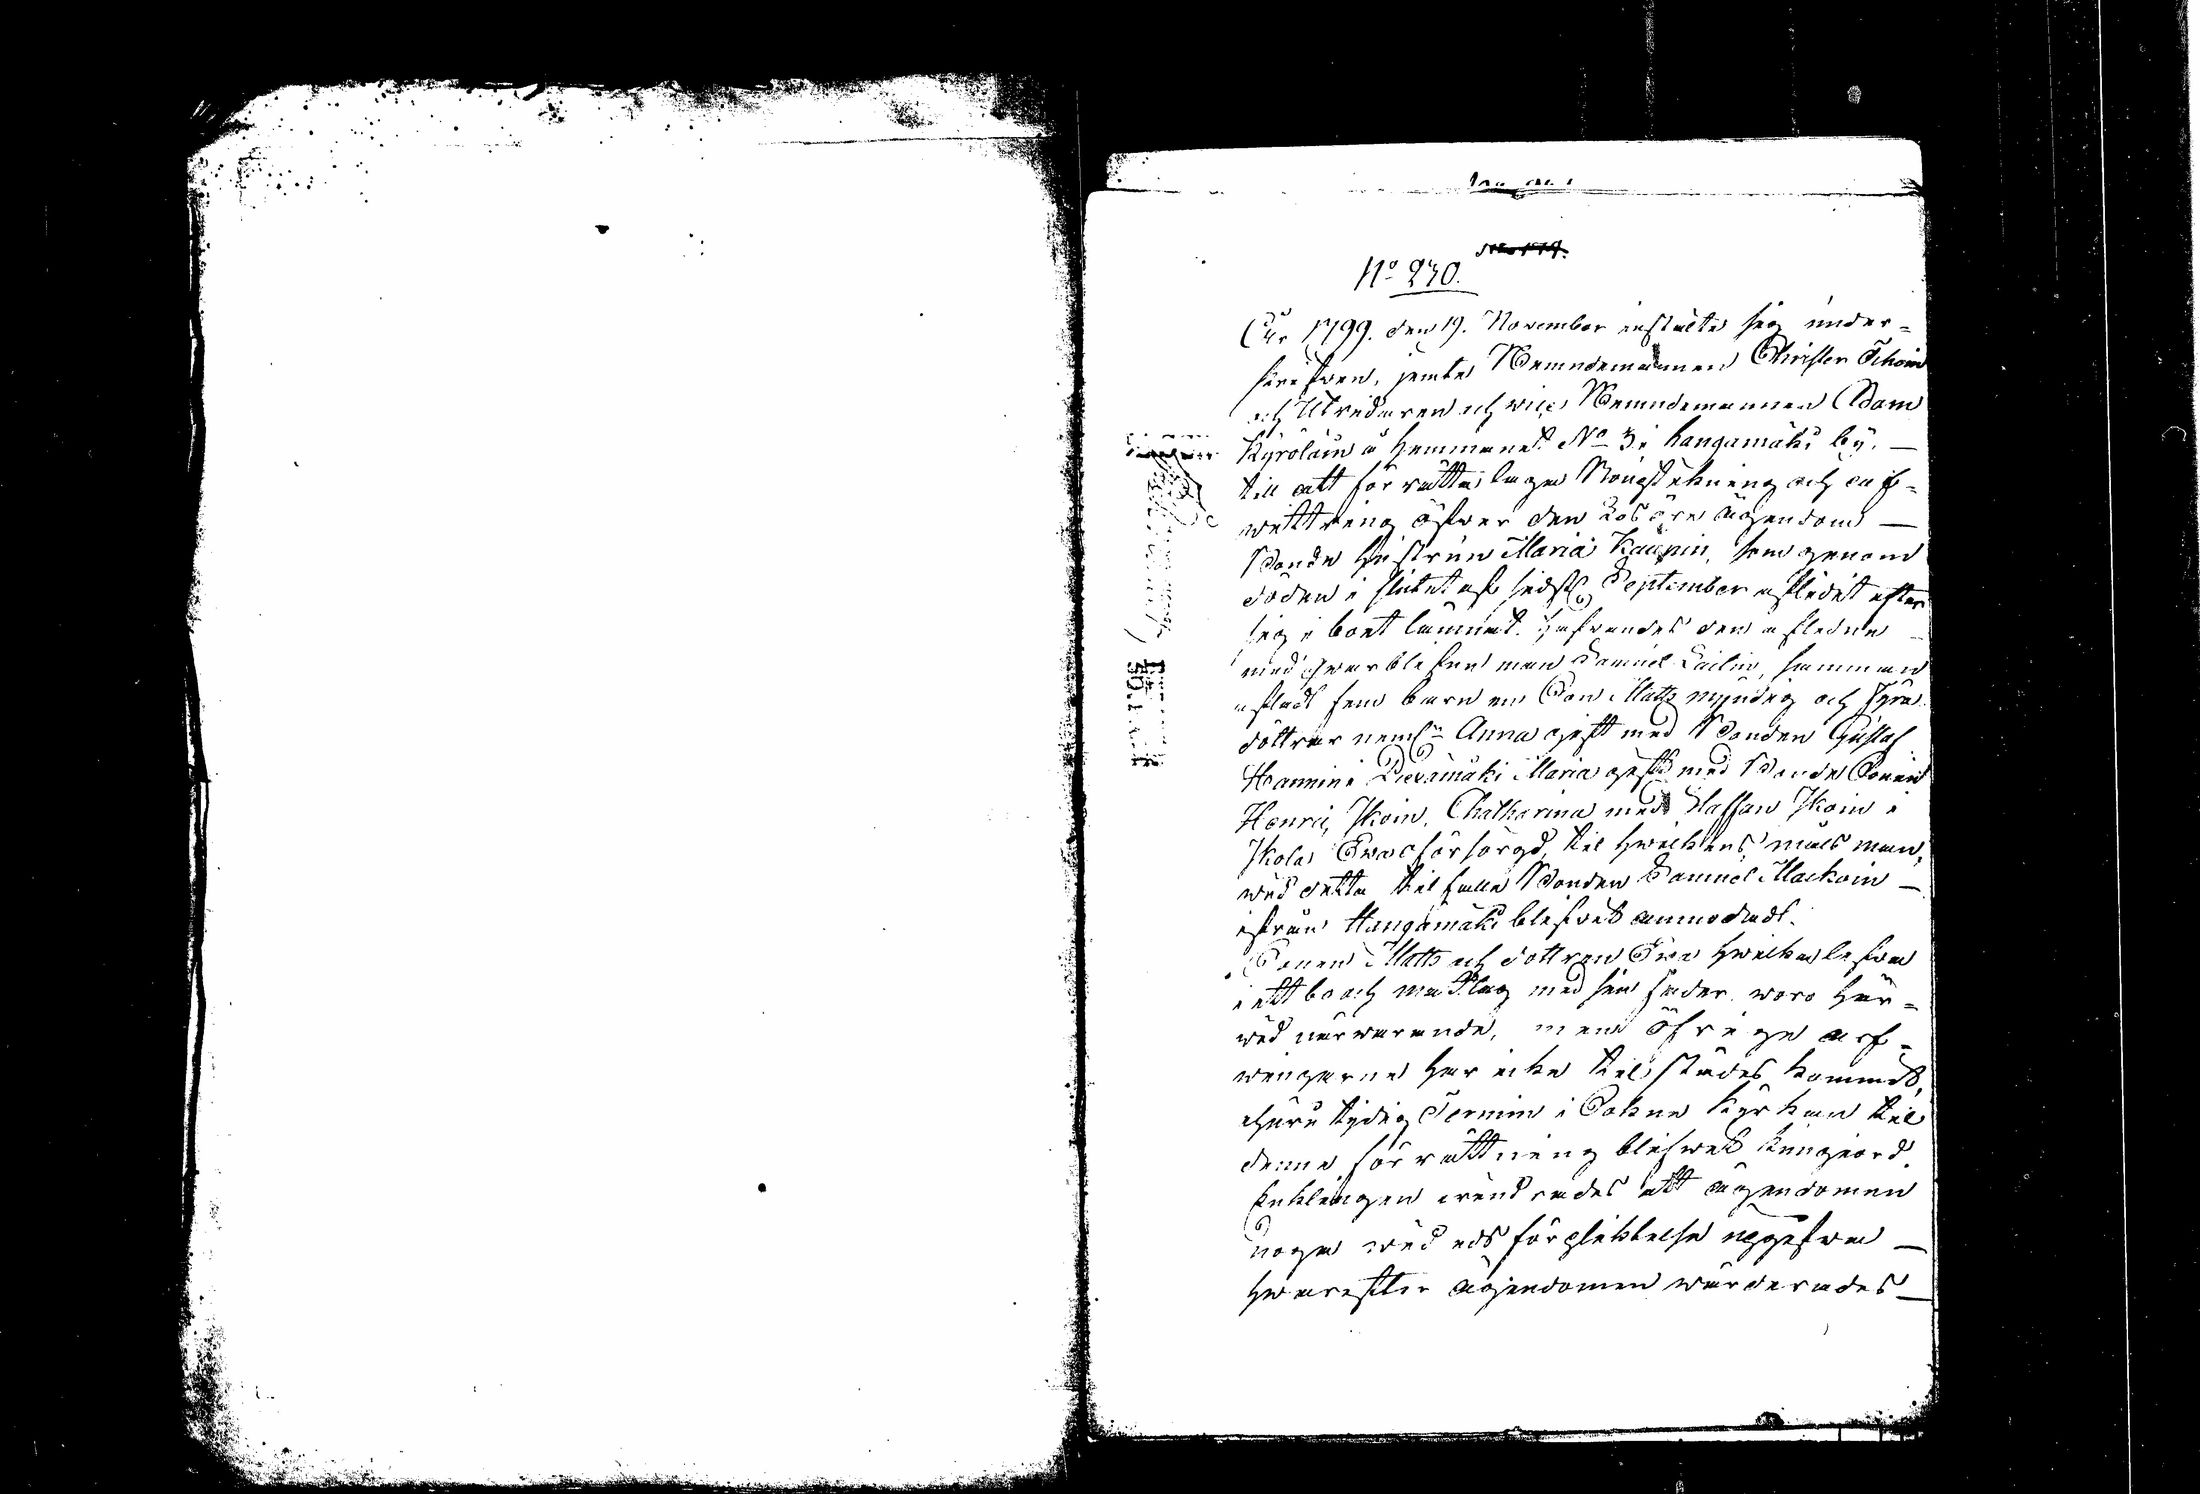 No 230.
År 1799. den 19. November instälte sig under-
skrefven, jemte Nemndemannen Christer Ichoin
och Utridaren och vice Nemndemannen Adam
Kyröläin å hemmanet No 3 i Kangamäki by. —
till att förrätta laga Bouptekning och caf-
wittring öfver den Lösöre ägendom —
Bonde Hustrun Maria Kaupin, som genom
döden i slutet af sidstl. September aflidit efter
sig i boet lämnat. Hafvandes den afledne —
med qvarblefne man Samuel Lailin, samman
afladt fem barn en Son Matts myndig och fyra
döttrar neml:n Anna gift med Bonden Gustaf
Hannin i Piexämäki Maria gift med Bonde Sonen
Henric Ikoin, Chatharina med Staffan Ikoin i
Ikola, Eva oförsörgd, til hwilkens måls man,
wid detta tilfälle Bonden Samuel Mackoin —
ifrån Kangamäki blifvit anmodad.
Sonen Matts och dottren Eva hwilka lefva
i ett bo och matlag med sin fader, woro här-
wid närwarande, men öfrige arf-
wingarne har icke tilstädes kommit,
ehuru tydig Termin i Sokne Kyrkan til
denne förrättning blifwet kungiord.
Enklingen tillspordes att ägendomen
noga wid eds förpliktelse uppgifwa —
hwarefter ägendomen wärderades —